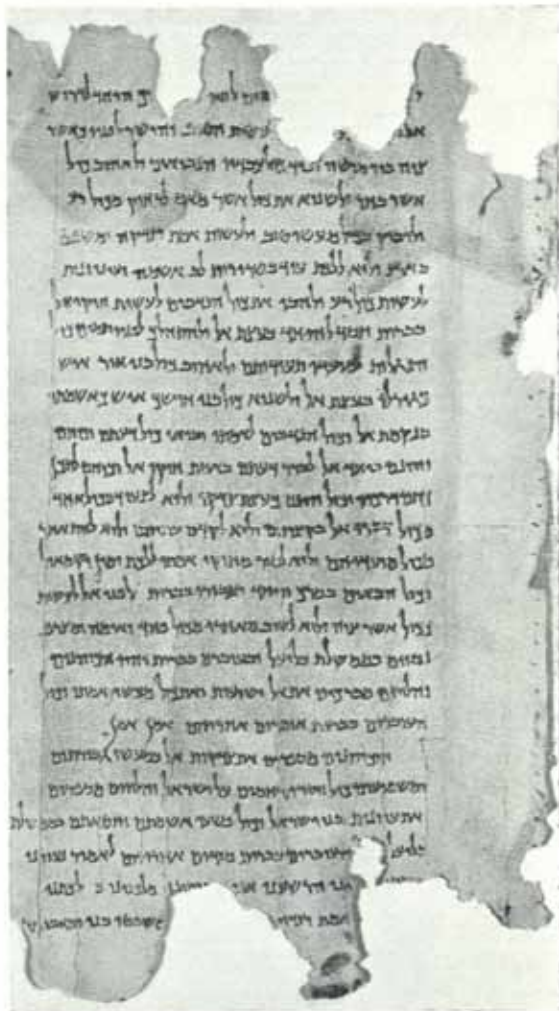 שים לחיו ך היחד לדרוש
אל לעשות הטוב והישר לפניו כאשר
צוה ביד מושה וביד כול עבדיו הנביאים ולאהוב כול
אשר בחר ולשנוא את כול אשר מאס לרחוק מכול רע
ולדבוק בכול מעשי טוב ולעשות אמת וצדקה ומשפט
בארץ ולוא ללכת עוד בשרירות לב אשמה ועיני זנות
לעשות כול רע ולהבי את כול הנדבים לעשות חוקי אל
בברית חסד להיחד בעצת אל ולהתהלך לפניו תמים כול
הנגלות למועדי תעודותם ולאהוב כול בני אור איש
כגורלו בעצת אל ולשנוא כול בני חושך איש כאשמתו
בנקמת אל וכול הנדבים לאמתו יביאו כול דעתם וכוחם
והונם ביחד אל לברר דעתם באמת חוקי אל וכוחם לתכן
כתם דרכיו וכול הונם כעצת צדקו ולוא לצעוד בכול אחד
מכול דברי אל בקציהם ולוא לקדם עתיהם ולוא להתאחר
מכול מועדיהם ולוא לסור מחוקי אמתו ללכת ימין ושמאול
וכול הבאים בסרך היחד יעבורו בברית לפני אל לעשות
ככול אשר צוה ולוא לשוב מאחרו מכול פחד ואימה ומצרף
נסוים בממשלת בליעל ובעוברם בברית יהיו הכוהנים
והלויים מברכים את אל ישועות ואת כול מעשי אמתו וכול
העוברים בברית אומרים אחריהם אמן אמן
והכוהנים מספרים את צדקות אל במעשי גבורתום
ומשמיעים כול חסדי רחמים על ישראל והלויים מספרים
את עוונות בני ישראל וכול פשעי אשמתם וחטאתם בממשלת
בליעל העוברים בברית מודים אחריהם לאמר נעוינו
אנו הרשענו אנו מלפנינו בה לכתנו
אמת וצדיק משפטו בנו